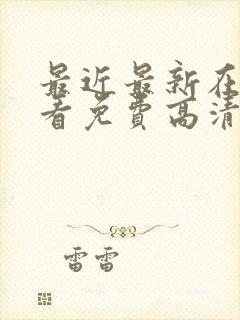 最近最新在
看免费高清
雷雷